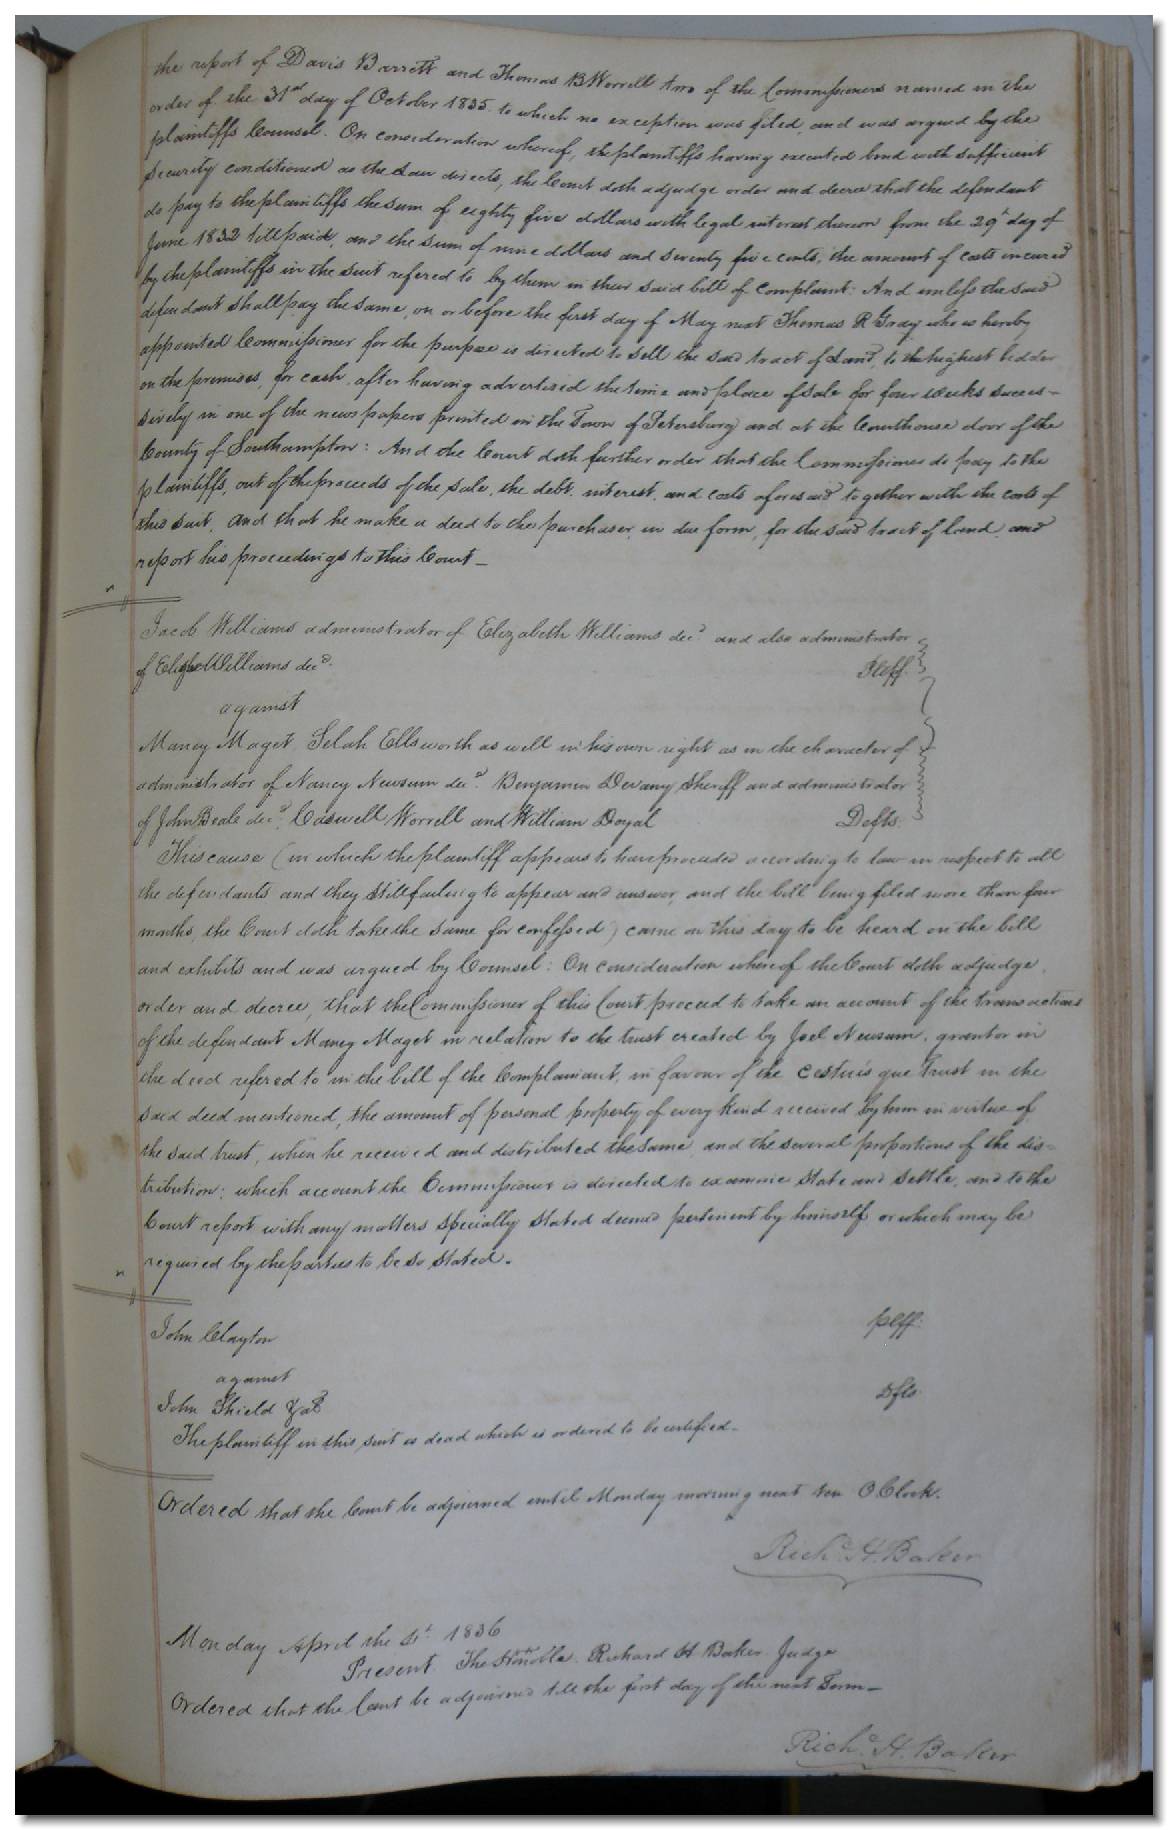 the report of Davis Barrett and Thomas B Worrell two of the Commissioners named in the
order of the 31st day of October 1835. to which no exception was filed, and was argued by the
plaintiffs Counsel. On consideration whereof, the plaintiffs having executed bond with sufficient
security conditioned as the Law directs, the Court doth adjudge order and decree that the defendant
do pay to the plaintiffs the sum of eighty five dollars with legal interest thereon from the 29th day of
June 1832 till paid, and the sum of nine dollars and seventy five cents, the amount of costs incured
by the plaintiffs in the suit refered to by them in their said bill of complaint: And unless the said
defendant shall pay the same, on or before the first day of May next Thomas R Gray who is hereby
appointed Commissioner for the purpose is directed to sell the said tract of Land, to the highest bidder
on the premises, for cash, after having advertised the time and place of sale for four weeks succes-
sively in one of the news papers printed in the Town of Petersburg and at the Courthouse door of the
County of Southampton: And the Court doth further order that the Commissioner do pay to the
plaintiffs, out of the proceeds of the sale, the debt, interest, and costs aforesaid together with the costs of
this suit, and that he make a deed to the purchaser, in due form, for the said tract of land, and
report his proceedings to this Court_
Jacob Williams administrator of Elizabeth Williams decd and also administrator
of Williams decd. Pleff.
against
Maney Maget, Selah Ellsworth as well in his own right as in the character of
administrator of Nancy Newsum decd. Benjamin Devany Sheriff and administrator
of John Beale decd. Caswell Worrell and William Doyal Defts.
This cause (in which the plaintiff appears to have proceeded according to law in respect to all
the defendants and they still failing to appear and answer, and the bill being filed more than four
months, the Court doth take the same for confessed) came on this day to be heard on the bill
and exhibits and was argued by Counsel: On consideration whereof the Court doth adjudge,
order and decree, that the Commissioner of this Court proceed to take an account of the transactions
of the defendant Maney Maget in relation to the trust created by Joel Newsum, grantor in
the deed refered to in the bill of the Complainant, in favour of the cestuis que trust in the
said deed mentioned, the amount of personal property of every kind received by him in virtue of
the said trust, when he received and distributed the same, and the several proportions of the dis-
tribution; which account the Commissioner is directed to examine state and settle, and to the
Court report with any matters specially stated deemed pertinent by himself or which may be
required by the parties to be so stated.
John Clayton pleff:
against
John Shield &als Dfts
The plaintiff in this suit is dead which is ordered to be certified.
Ordered that the Court be adjourned until Monday morning next ten OClock.
Richd. H. Baker
Monday April the 1836
Present The Honoble. Richard H Baker Judge
Ordered that the Court be adjourned till the first day of the next Term_
Richd. H. Baker